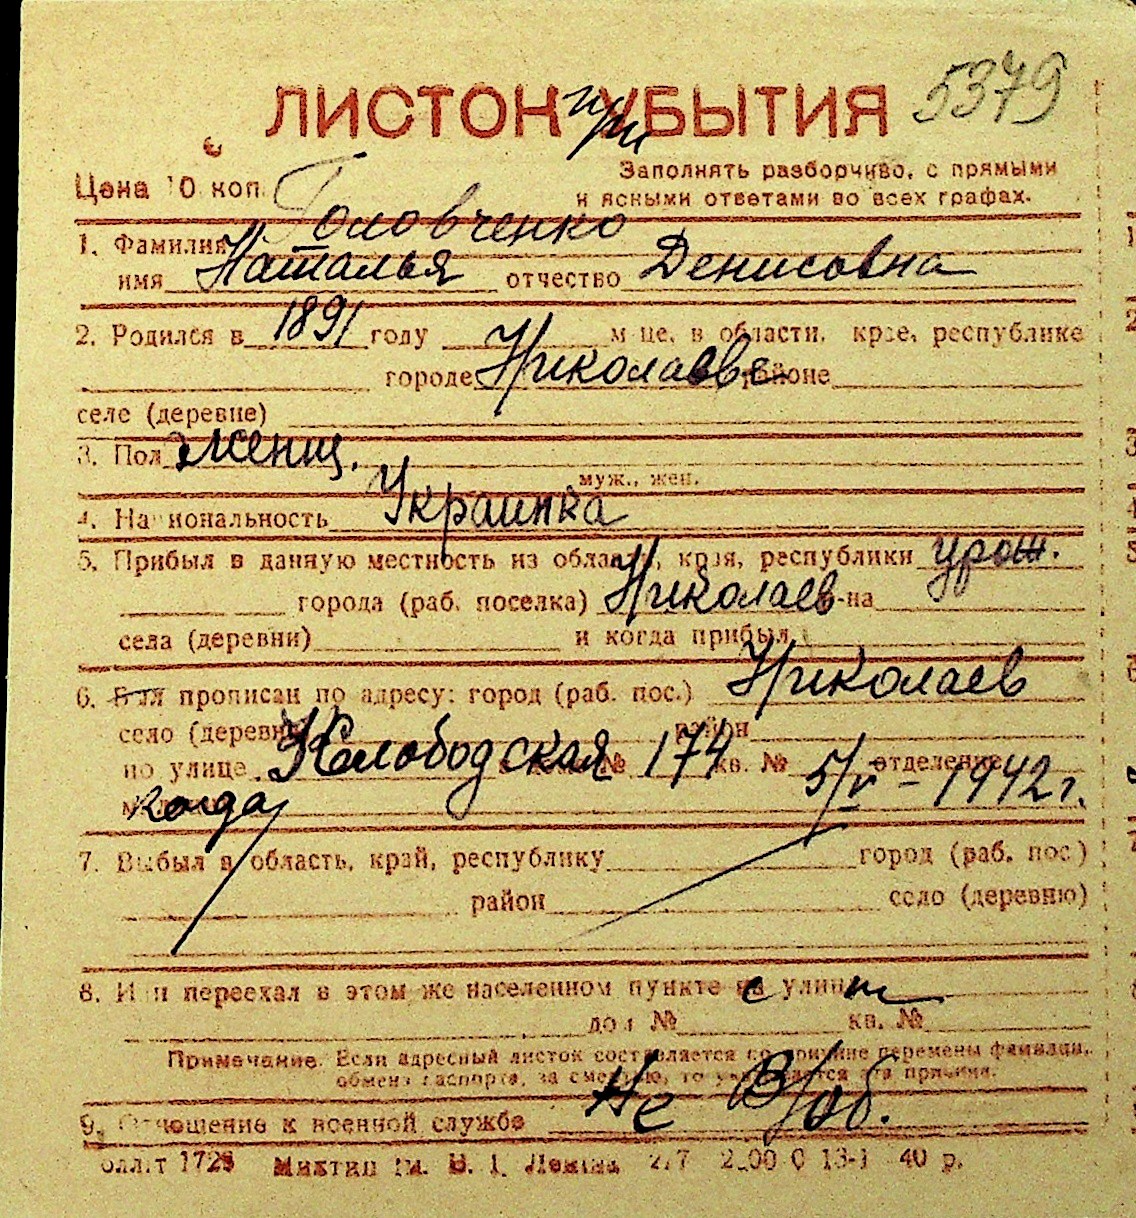 5379
ЛИСТОК при УБЫТИЯ
Цена 10 коп.
Заполнять разборчиво, с прямыми
и ясными ответами во всех графах.
1. Фамилия Головченко
имя Наталья отчество Денисовна
2. Родился в 1891 году м-це, в области, крае, республике
городе Николаеве районе
селе (деревне)
3. Пол женщ.
муж., жен.
4. Национальность Украинка
5. Прибыл в данную местность из области, края, республики урож.
города (раб. поселка) Николаев р-на
села (деревни) и когда прибыл
6. Был прописан по адресу: город (раб. пос.) Николаев
село (деревня) район
по улице Слободская дом № 174 кв. № отделение
Когда 5/V – 1942 г.
7. Выбыл в область, край, республику город (раб. пос.)
район село (деревню)
8. Или переехал в этом же населенном пункте на улицу
дом № кв. №
Примечание. Если адресный листок составляется по причине перемены фамилии,
обмена паспорта, за смертью, то указывается эта причина.
9. Отношение к военной службе Не В/об.
1725 им. В. И. Ленина 40 р.